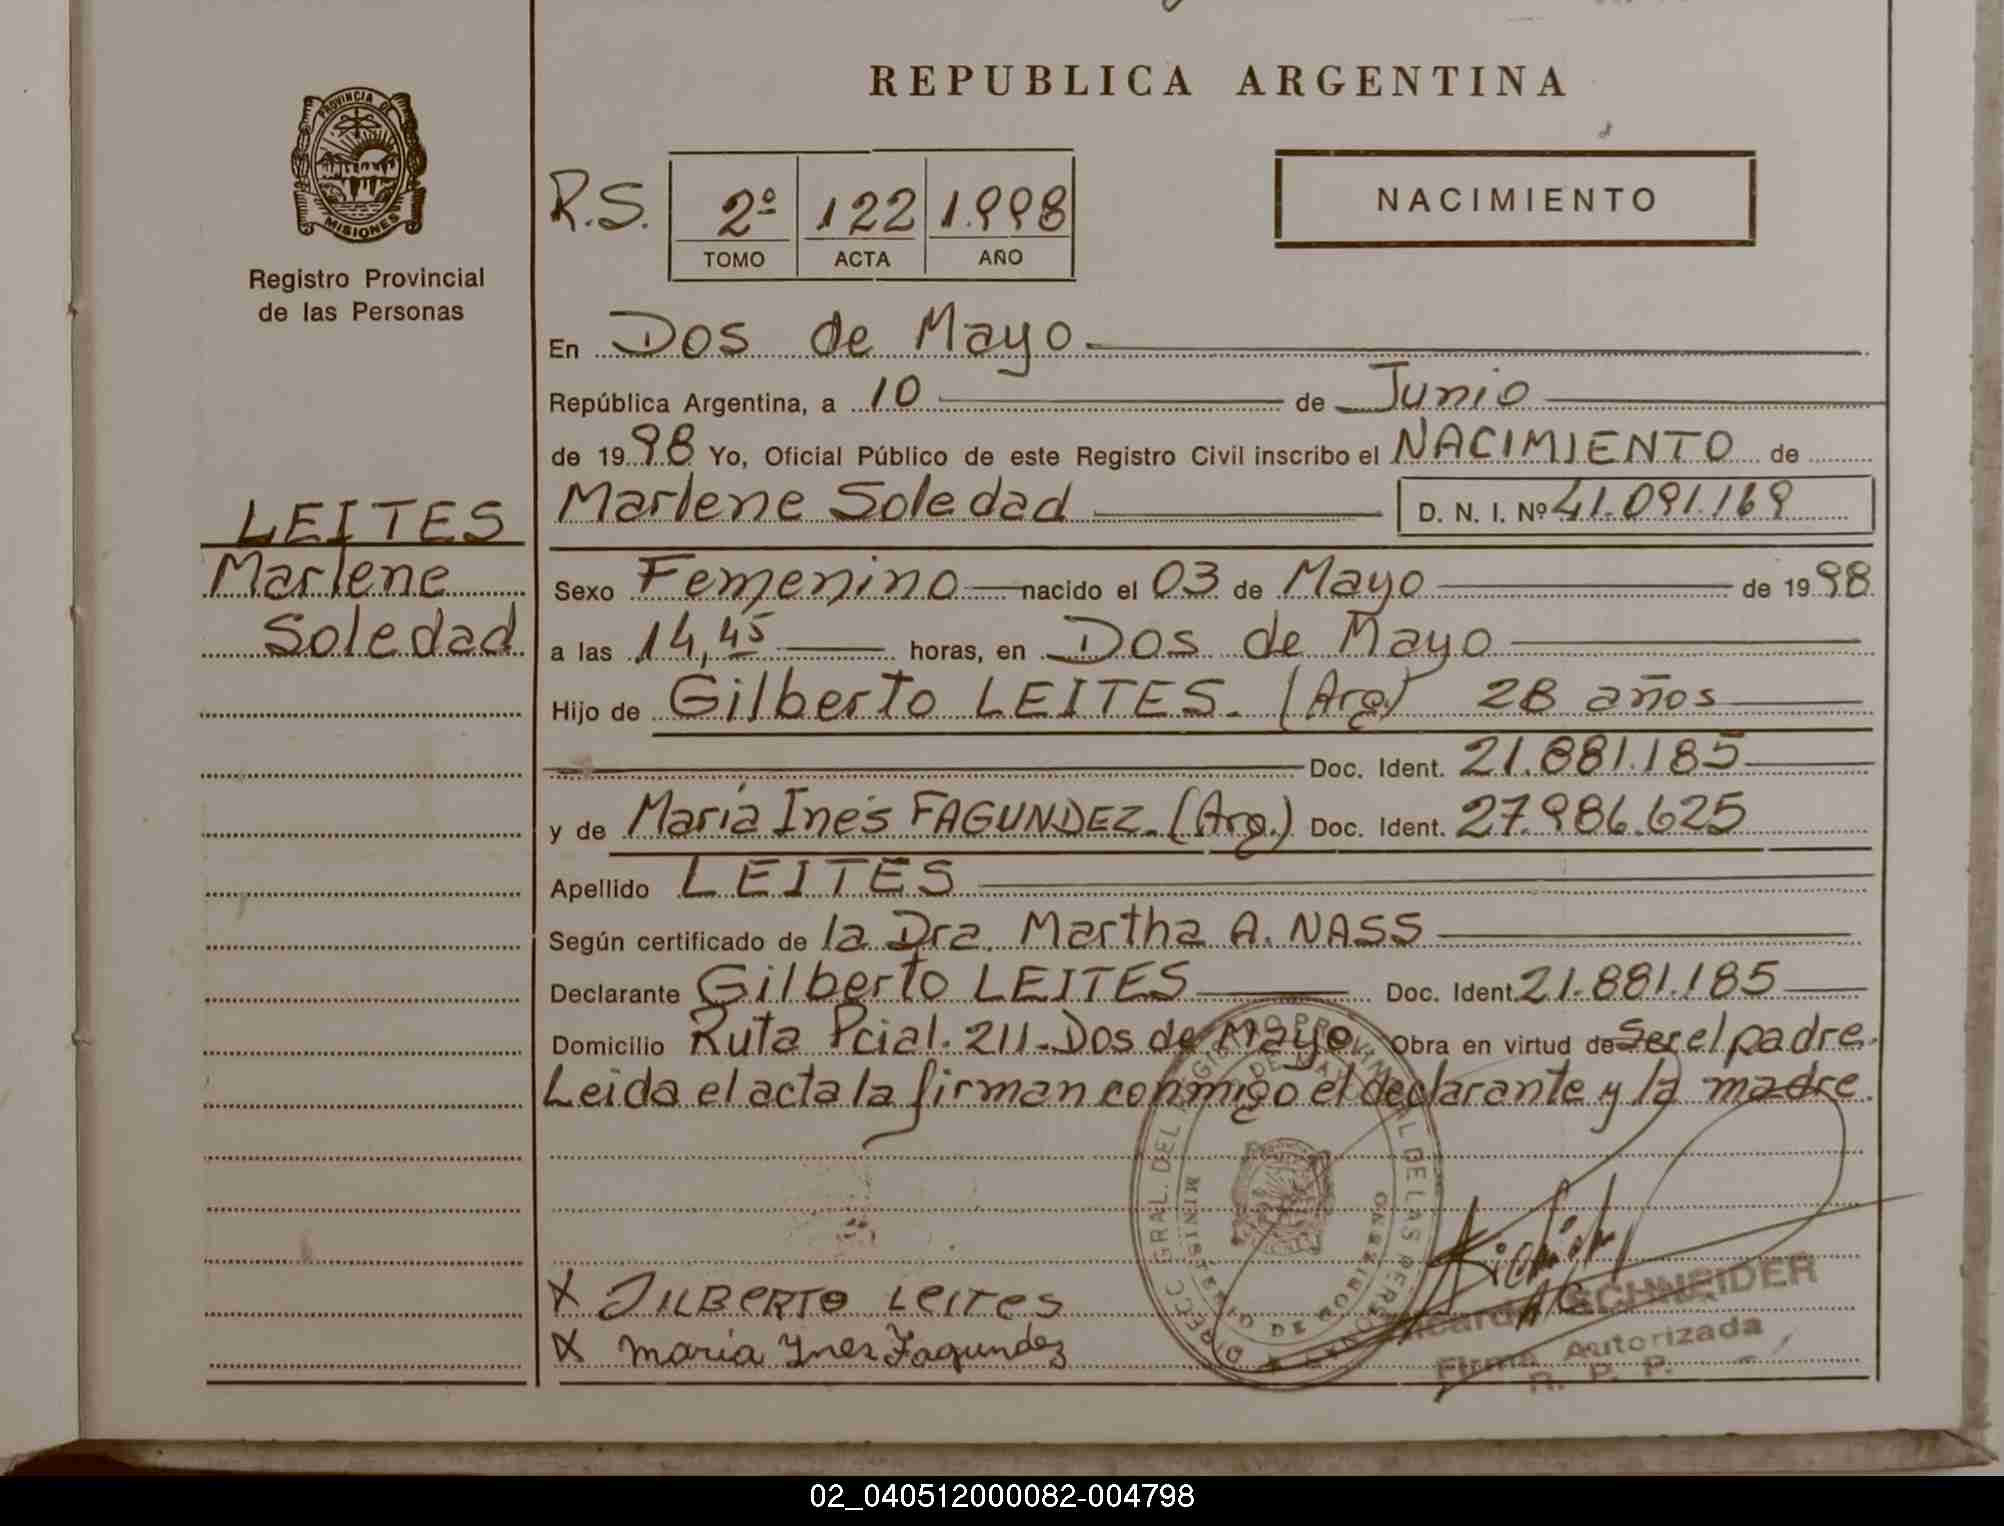 REPUBLICA ARGENTINA
PROVINCIA DE
MISIONES
Registro Provincial
de las Personas
R.S. 2º 122 1.998
TOMO ACTA AÑO
NACIMIENTO
En Dos de Mayo
República Argentina, a 10 de Junio
de 1998 Yo, Oficial Público de este Registro Civil inscribo el NACIMIENTO de
Marlene Soledad D. N. I. Nº 41.091.169
LEITES
Marlene
Soledad
Sexo Femenino nacido el 03 de Mayo de 1998
a las 14,45 horas, en Dos de Mayo
Hijo de Gilberto LEITES. (Arg) 28 años
Doc. Ident. 21.881.185
y de María Inés FAGUNDEZ. (Arg.) Doc. Ident. 27.986.625
Apellido LEITES
Según certificado de la Dra. Martha A. NASS
Declarante Gilberto LEITES Doc. Ident. 21.881.185
Domicilio Ruta Pcial. 211-Dos de Mayo. Obra en virtud de ser el padre.
Leida el acta la firman conmigo el declarante y la madre.
X JILBERTO LEITES
X maria Ynes Fagundez
Ricardo SCHNEIDER
Firma Autorizada
R. P. P.
02_040512000082-004798